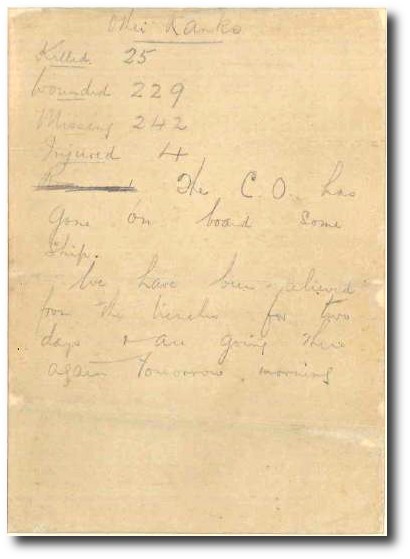 Other Ranks
Killed. 25
Wounded 229
Missing 242
Injured 4
The C.O. has
gone on board some
ship.
We have been relieved
from the trenches for two
days & are going there
again tomorrow morning